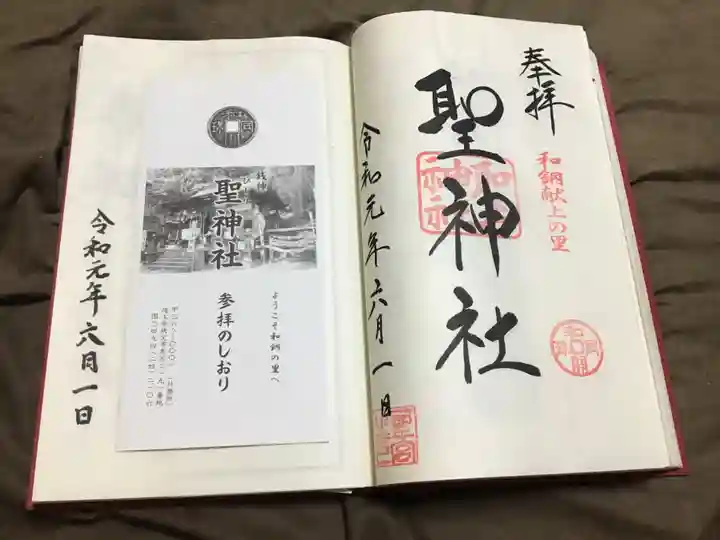 奉拝
和銅献上の里
聖神社
令和元年六月一日
銭神
聖神社
ようこそ和銅の里へ
参拝のしおり
令和元年六月一日